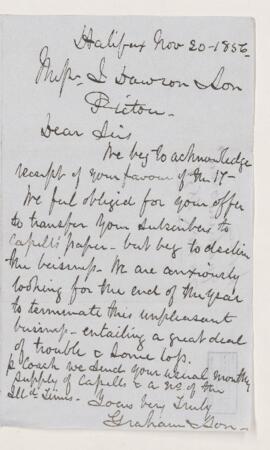 Halifax Nov 20 - 1856
Messrs J Dawson & Son
Pictou -
Dear Sirs
We beg to acknowledge
receipt of your favour of the 17 -
We feel obliged for your offer
to transfer your subscribers to
Capelli paper - but beg to decline
the business - We are anxiously
looking for the end of the year
to terminate this unpleasant
business - entailing a great deal
of trouble & some loss.
p Coach we send your usual monthly
supply of Capelli & a No. of the
Ill'd Times. Yours very truly
Graham & Son -